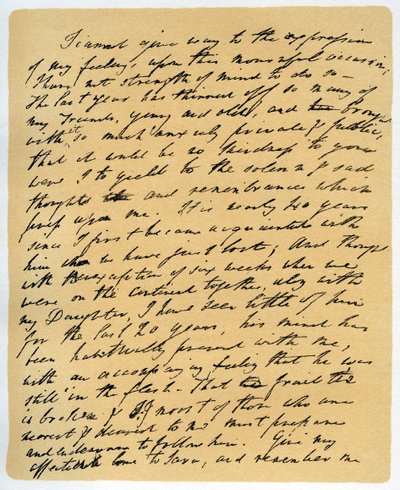 I cannot give way to the expression
of my feelings upon this mournful occasion;
I have not strength of mind to do so —
The last year has thinned off so many of
my Friends, young and old, and brought
with it so much anxiety private & public,
that it would be no kindness to you
were I to yield to the solemn & sad
thoughts and remembrances which
press upon me. It is nearly 40 years
since I first became acquainted with
him we have just lost; And though
with the exception of six weeks when we
were on the continent together, along with
my Daughter, I have seen little of him
for the last 20 years, his mind has
been habitually present with me,
with an accompanying feeling that he was
still in the flesh. That frail tie
is broken & I, & most of those who are
nearest & dearest to me must prepare
and endeavour to follow him. Give my
affectionate love to Sara, and remember me